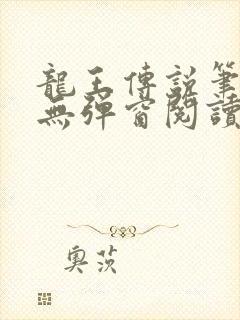 龍王傳說筆
無彈窗閱讀
奧茨